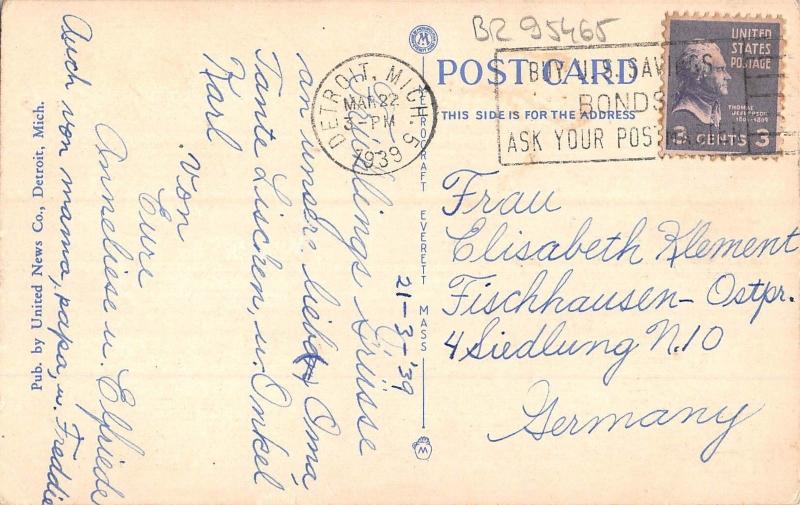 BR 95465
POST CARD
THIS SIDE IS FOR THE ADDRESS
DETROIT, MICH. 5
MAR 22
3 - PM
1939
BUY U.S. SAVINGS
BONDS
ASK YOUR POST
UNITED
STATES
POSTAGE
THOMAS
JEFFERSON
1801-1809
3 CENTS 3
21-3-'39
Grüsse
an unsere liebe Oma
Tante Lischen, u. Onkel
Karl
von
Eure
Anneliese u. Elfriede
Auch von mama, papa, u. Freddie
Frau
Elisabeth Klement
Fischhausen - Ostpr.
4 Siedlung N. 10
Germany
EVERETT MASS
Pub. by United News Co., Detroit, Mich.